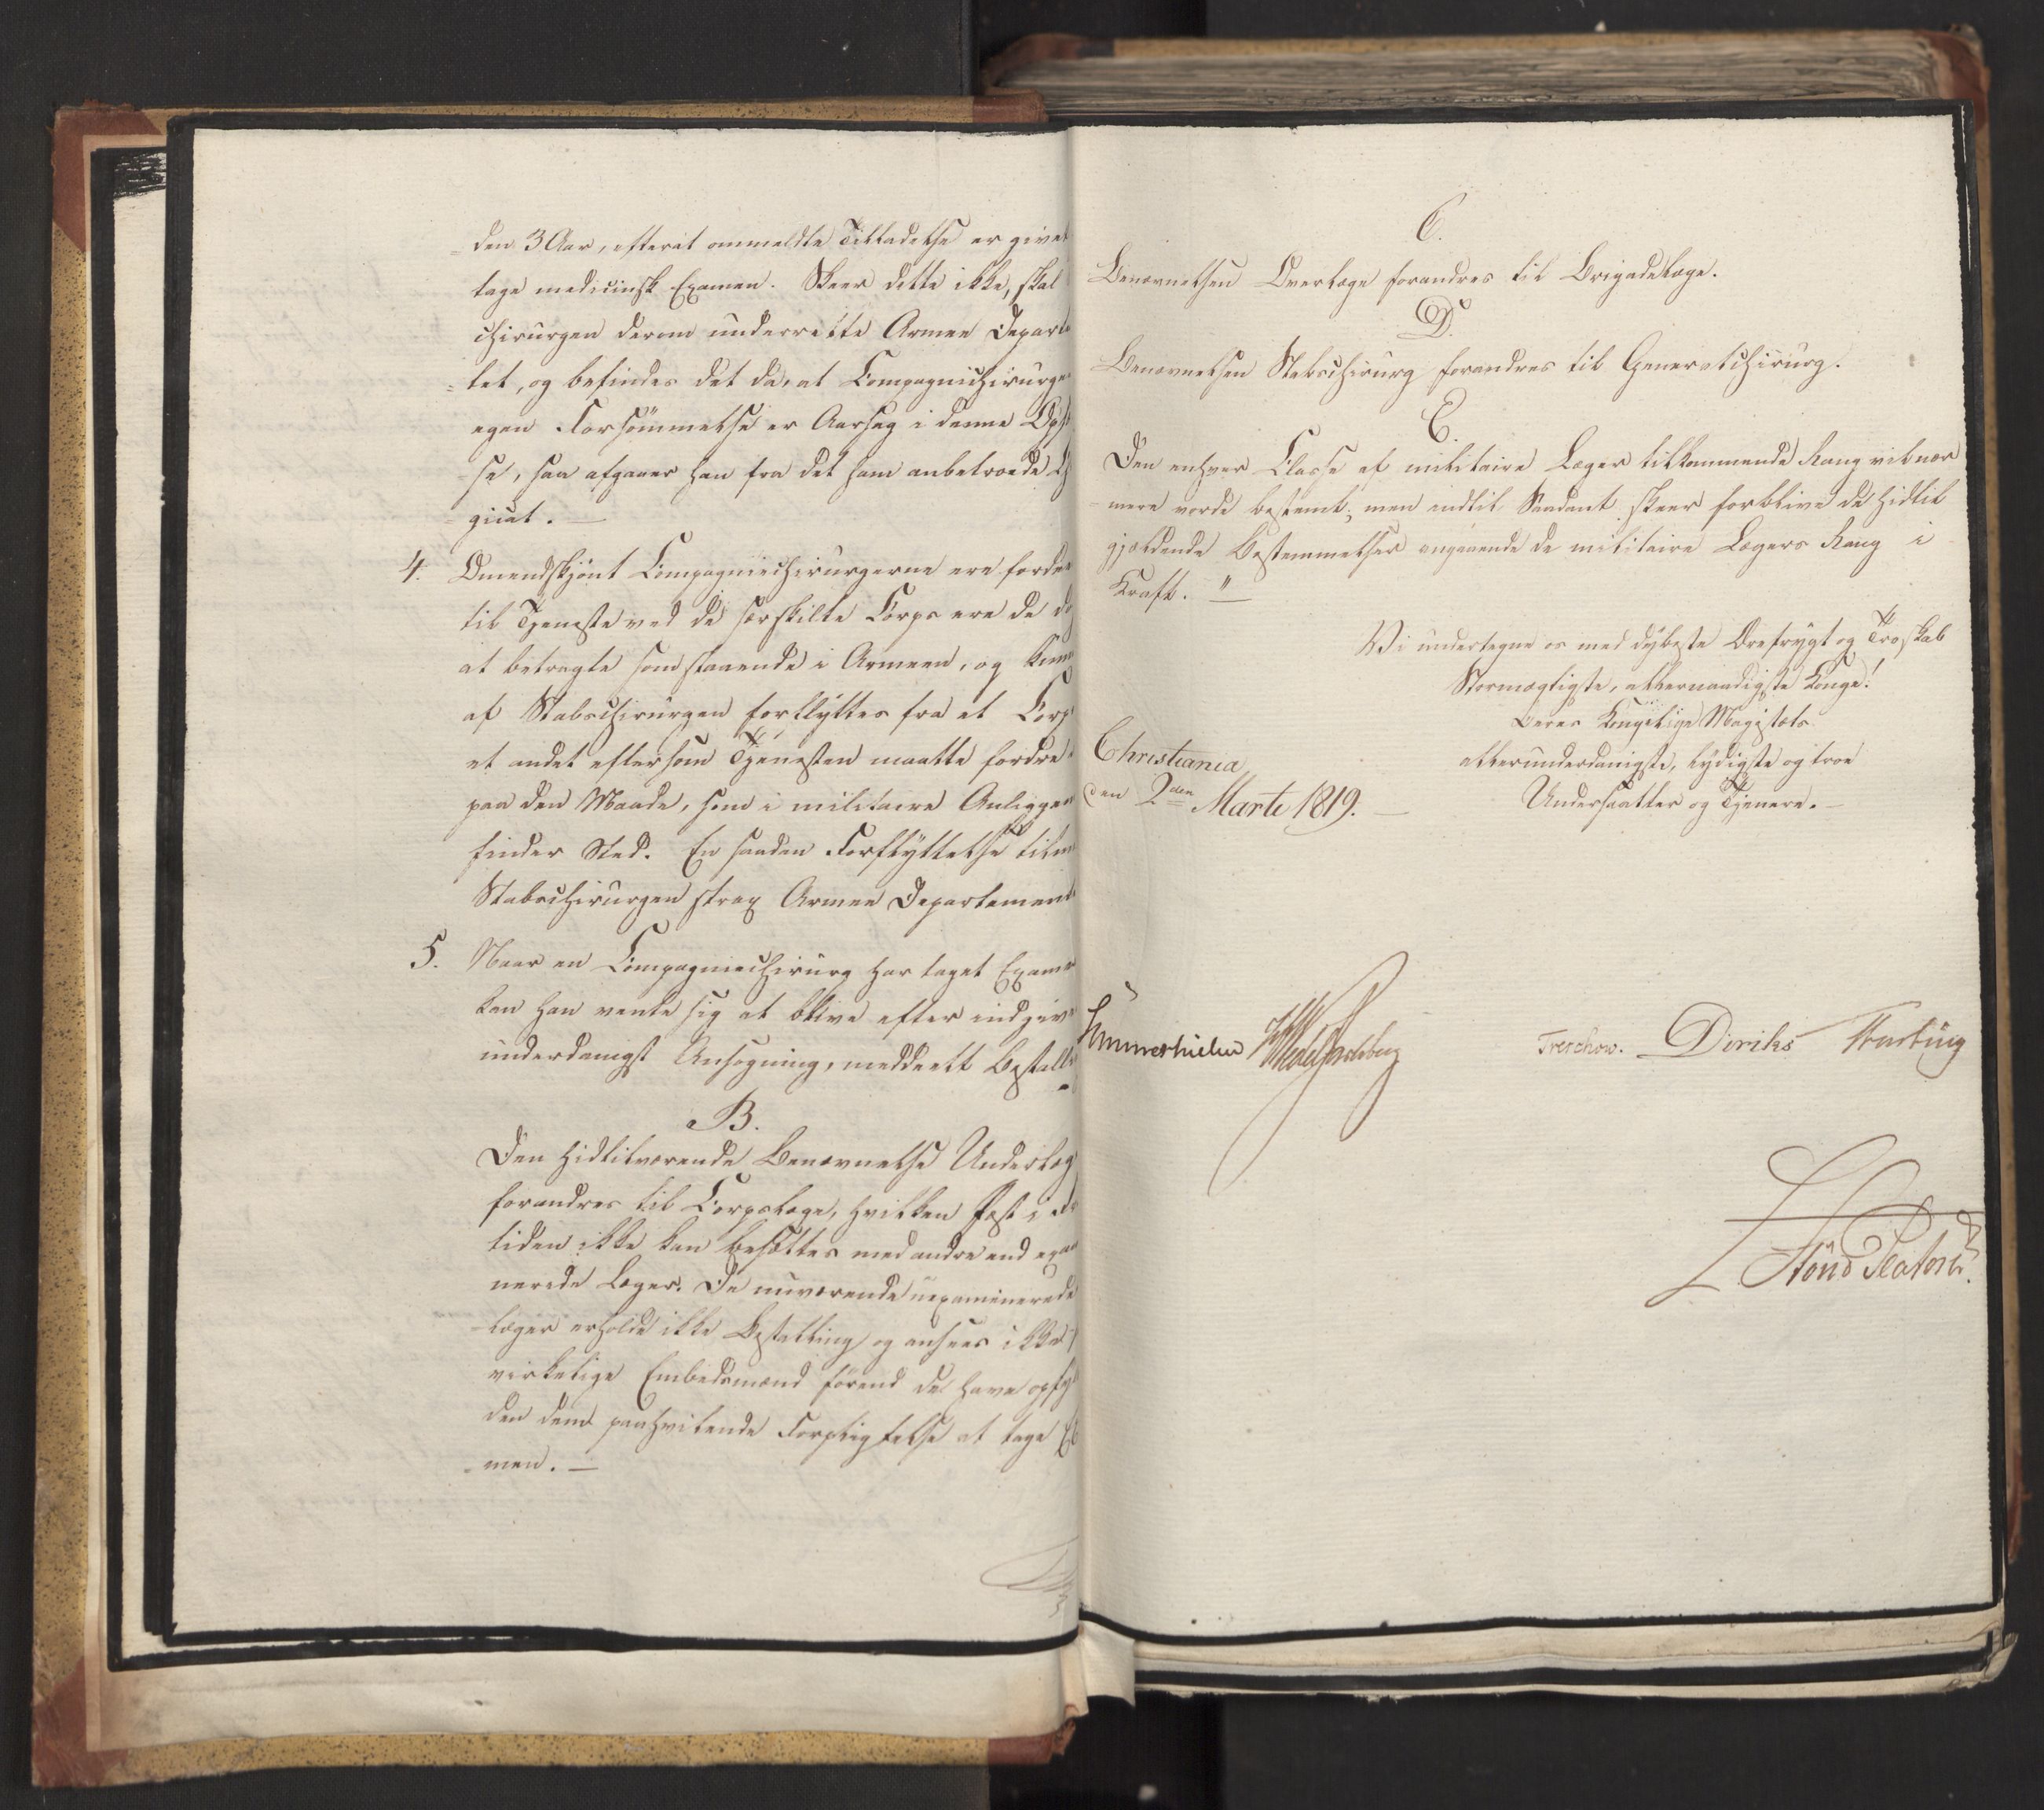 den 3 Aar, efterat anmeldte Tilladelse er givet
tage medicinsk Examen. Skeer dette ikke, skal
chirurgen derom underrette Armee Departe
tet, og befindes det da, at Compagniechirurge
egen Forsömmelse er Aarsag i denne
se, saa afgaaer han fra det ham anbetroede Ch
giat. —
4. Omendskjönt Compagniechirurgerne ere forde
til Tjeneste ved de særskilte Corps ere de do
at betragte som staaende i Armeen, og kunn
af Stabschirurgen forflyttes fra et Corp
et andet eftersom Tjenesten maatte fordre
paa den Maade, som i militaire Anliggen
finder Sted. En saadan Forflyttelse
Stabschirurgen strax Armee Departement
5. Naar en Compagniechirurg har taget Exame
kan han vente sig at blive efter indgive
underdanigst Ansögning, meddeelt Bestall
B.
Den hidtilværende Benævnelse Underlæg
forandres til Corpslæge, hvilken Post i
tiden ikke kan besættes med andre end exa
nerede Læger. De nuværende uexaminerede
læger erholde ikke Bestalling og ansees ikke
virkelige Embedsmænd förend de have opfyl
den dem paahvilende Forpligtelse at tage Ex
men. —
C.
Benævnelsen Overlæge forandres til Brigadelæge.
D.
Benævnelsen Stabschirurg forandres til Generalchirurg.
E.
Den enhver Classe af militaire Læger tilkommende Rang vil nær
mere vorde bestemt; men indtil Saadant skeer forblive de hidtil
gjældende Bestemmelser angaaende de militaire Lægers Rang i
Kraft. "
Vi undertegne os med dybeste Ærefrygt og Troskab
Stormægtigste, allernaadigste Konge!
Deres Kongelige Majestæts
allerunderdanigste, lydigste og troe
Undersaatter og Tjenere. —
Christiania
den 2den Marti 1819. —
Hummerhielm Wedel Jarlsberg Treschow. Diriks Motzfeldt